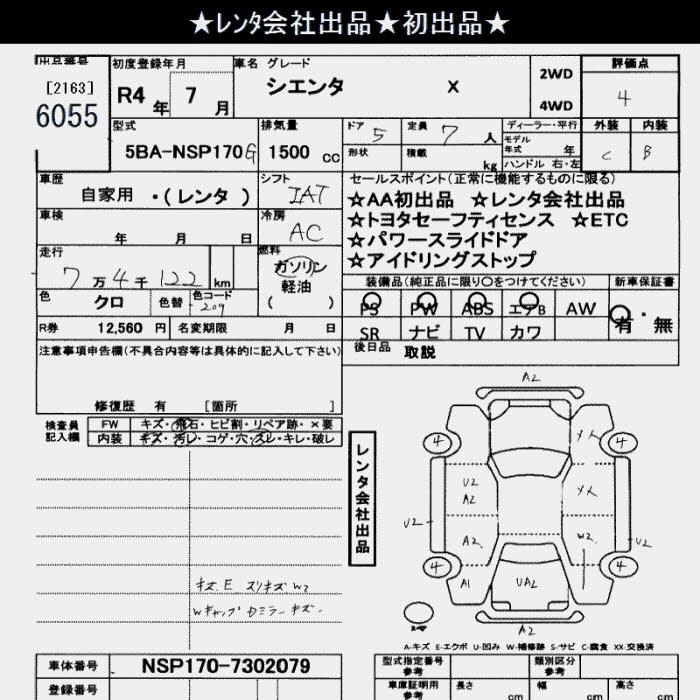 ★レンタ会社出品★初出品★
出品番号
[2163]
6055
初度登録年月
R4 年 7 月
車名 グレード
シエンタ X
2WD
4WD
評価点
4
型式
5BA-NSP170G
排気量
1500 cc
ドア 5
形状
定員 7 人
積載 kg
ディーラー・平行
モデル年式 年
ハンドル 右・左
外装 内装
C B
車歴
自家用 ・(レンタ )
シフト
IAT
車検
年 月 日
冷房
AC
走行
7 万 4 千 122 km
燃料
ガソリン
軽油
( )
色 クロ 色替 色コード 209
R券 12,560 円 名変期限 月 日
セールスポイント(正常に機能するものに限る)
☆AA初出品 ☆レンタ会社出品
☆トヨタセーフティセンス ☆ETC
☆パワースライドドア
☆アイドリングストップ
装備品(純正品に限り〇をつけてください)
新車保証書
PS PW ABS エアB AW
有・無
SR ナビ TV カワ
後日品 取説
注意事項申告欄(不具合内容等は具体的に記入して下さい)
修復歴 有 [箇所 ]
検査員記入欄
FW キズ・飛石・ヒビ割・リペア跡・×要
内装 キズ・汚レ・コゲ・穴・スレ・キレ・破レ
レンタ会社出品
A2
4 4
U2
A2
U2
A2
A1
UA2
W2
U2
4 4
A2
キズ E スリキズ W2
Wキャップ Dミラー キズ.
A-キズ E-エクボ U-凹み W-補修跡 S-サビ C-腐食 XX-交換済
車体番号 NSP170-7302079
登録番号
型式指定番号 参考
類別区分 参考
車庫証明用 参考
長さ cm 幅 cm 高さ cm